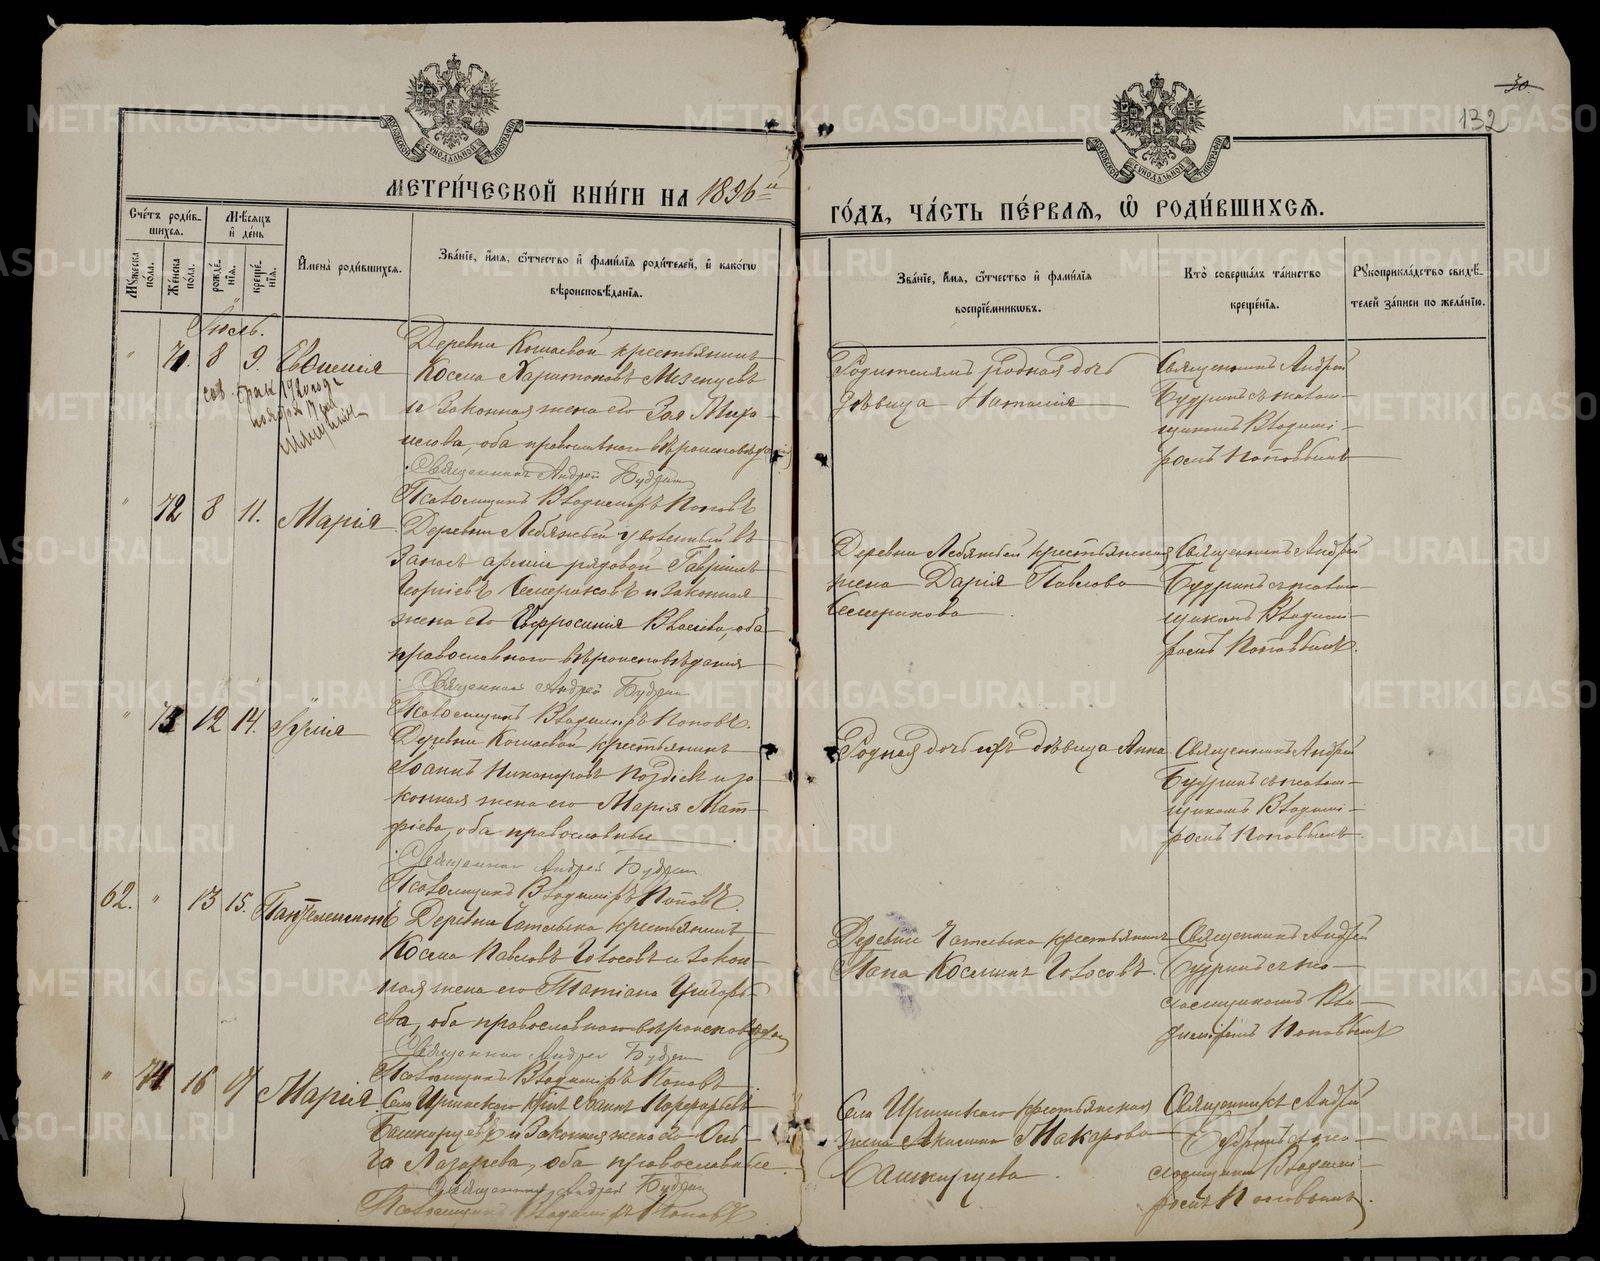 30.
132
МОСКОВСКОЙ СѴНОДАЛЬНОЙ ТИПОГРАФІИ
МОСКОВСКОЙ СѴНОДАЛЬНОЙ ТИПОГРАФІИ
МЕТРИ́ЧЕСКОЙ КНИ́ГИ НА 1896 й
ГО́ДЪ, ЧА́СТЬ ПЕ́РВАЯ, Ѽ РОДИ́ВШИХСЯ.
Сче́тъ роди́в-
шихся.
Мѣсяцъ
и҆ де́нь
Мꙋжеска
по́ла.
Же́нска
по́ла.
рожде́-
нїя.
креще́-
нїя.
И҆мена̀ роди́вшихся.
Зва́нїе, и҆́мя, ѻ҆́тчество и҆ фами́лїя роди́телей, и҆ како́гѡ
вѣроисповѣ́данїя.
Зва́нїе, и҆́мя, ѻ҆́тчество и҆ фами́лїя
воспрїе́мникѡвъ.
Кто̀ соверша́лъ та́инство
креще́нїя.
Рꙋкоприкла́дство свидѣ́-
телей за́писи по жела́нїю.
Іюль.
" 71. 8 9. Евѳимія
Деревни Кошаевой крестьянинъ
Косма Харитоновъ Мезенцевъ
и законная жена его Зоя Миро-
нова, оба православнаго вѣроисповѣданія
Священникъ Андрей Будринъ
Псаломщикъ Владиміръ Поповъ
Родителямъ родная дочь
дѣвица Наталія
Священникъ Андрей
Будринъ съ псалом-
щикомъ Владимі-
ромъ Поповымъ
" 72 8 11. Марія
Деревни Лебяжьей уволенный въ
запасъ арміи рядовой Гавріилъ
Георгіевъ Семериковъ и законная
жена его Евфросинія Власіева, оба
православнаго вѣроисповѣданія
Священникъ Андрей Будринъ
Псаломщикъ Владиміръ Поповъ.
Деревни Лебяжьей крестьянская
жена Дарія Павлова
Семерикова
Священникъ Андрей
Будринъ съ псалом-
щикомъ Владимі-
ромъ Поповымъ.
" 73 12 14.
Деревни Кошаевой крестьянинъ
Іоаннъ Никаноровъ и за-
конная жена его Марія Мат-
фіева, оба православные
Священникъ Андрей Будринъ
Псаломщикъ Владиміръ Поповъ.
Родная дочь ихъ дѣвица Анна
Священникъ Андрей
Будринъ съ псалом-
щикомъ Владимі-
ромъ Поповымъ
62. " 13 15. Пантелеимонъ
Деревни крестьянинъ
Косма Павловъ Голосовъ и закон-
ная жена его Татіана Григорь-
ева, оба православнаго вѣроисповѣданія
Священникъ Андрей Будринъ
Псаломщикъ Владиміръ Поповъ
Деревни крестьянинъ
Косминъ Голосовъ.
Священникъ Андрей
Будринъ съ пса-
ломщикомъ Вла-
диміромъ Поповымъ
" 74 16 17 Марія
Села Ирбитскаго Іоаннъ Порфирьевъ
Башкирцевъ и законная жена его Оль-
га Лазарева, оба православные.
Священникъ Андрей Будринъ
Псаломщикъ Владиміръ Поповъ
Села крестьянская
жена Акилина Макарова
Башкирцева
Священникъ Андрей
Будринъ съ пса-
ломщикомъ Владимі-
ромъ Поповымъ.
METRIKI.GASO-URAL.RU